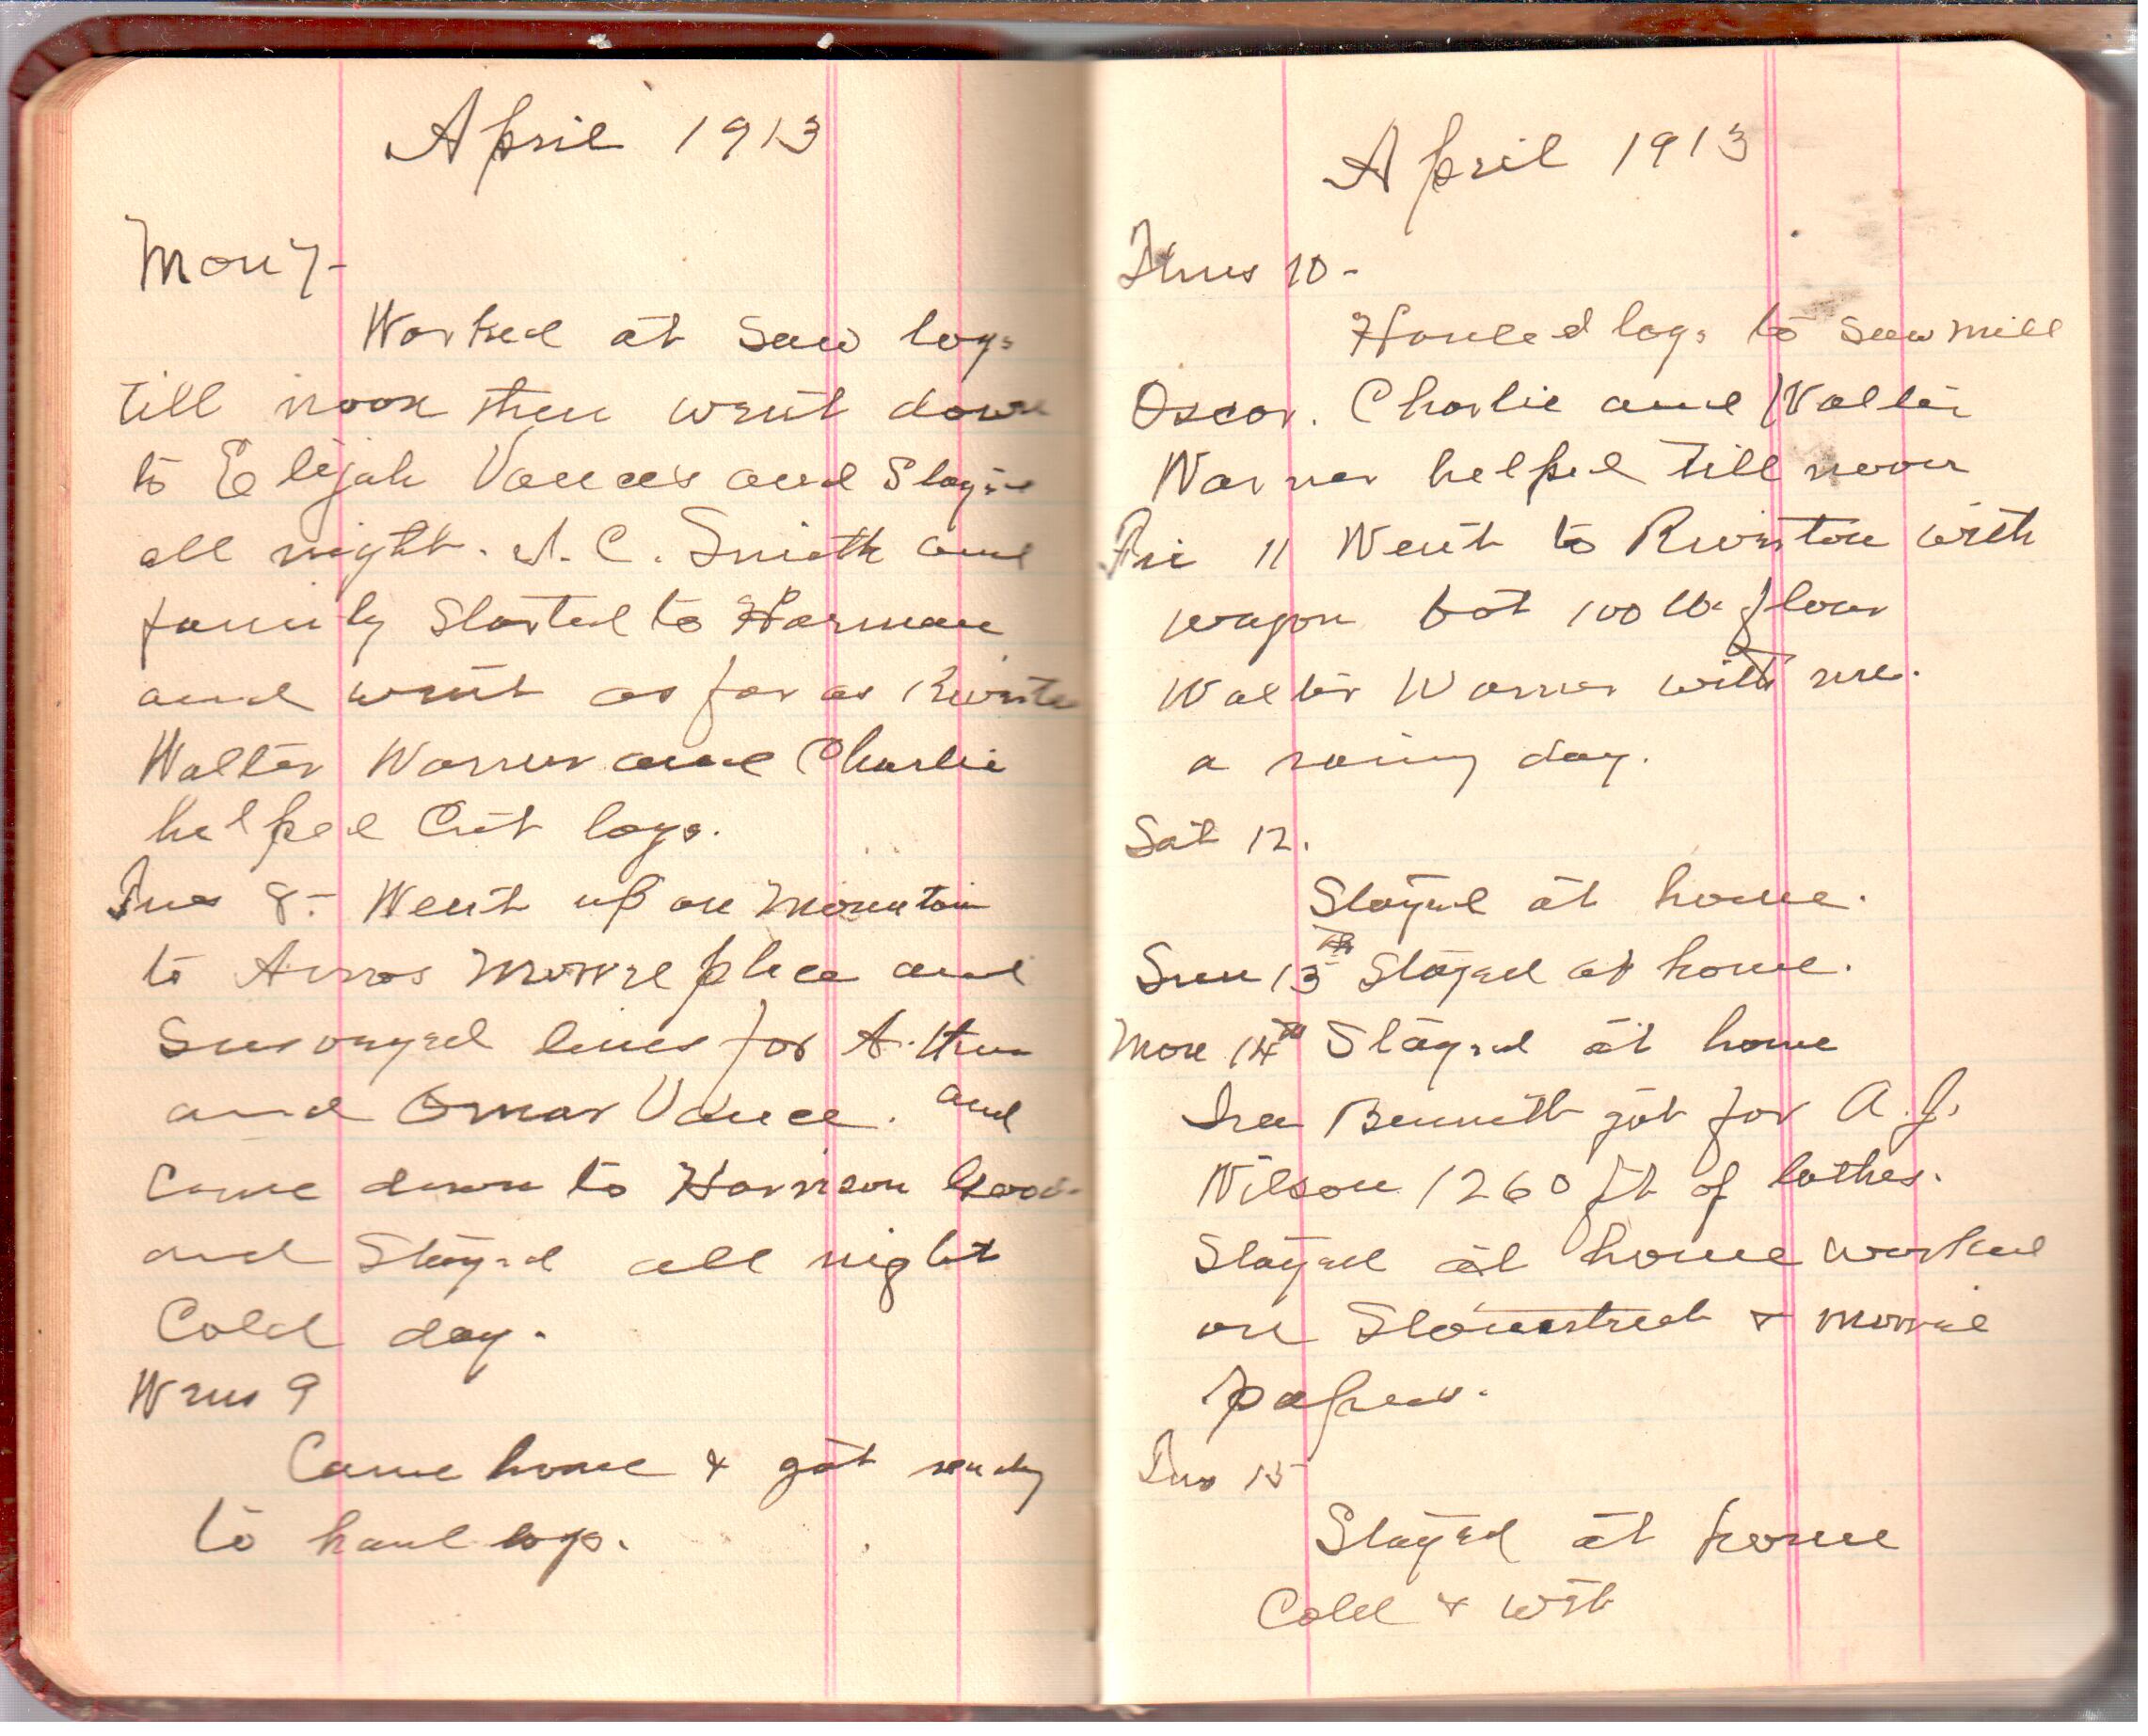 April 1913
Mon 7-
Worked at Saw logs
till noon then went down
to Elijah Vances and Stayed
all night. A. C. Smith and
family Started to Harman
and went as far as
Walter Warner and Charlie
helped Cut logs.
Tues 8- Went up on Mountain
to Amos place and
Survayed lines for
and Omar Vance. and
Came down to Harrison
and Stayed all night
Cold day.
Wens 9
Came home & got ready
to haul logs.
April 1913
Thurs 10-
Hauled logs to Saw mill
Oscar. Charlie and Walter
Warner helped till noon
Fri 11 Went to Riverton with
wagon bot 100 lb flour
Walter Warner with me.
a rainy day.
Sat 12.
Stayed at home.
Sun 13th Stayed at home.
Mon 14th Stayed at home
Ira Bennett got for A. J.
Wilson 1260 ft of lathes.
Stayed at home worked
on Stonestreet &
papers.
Tues 15
Stayed at home
Cold & wet